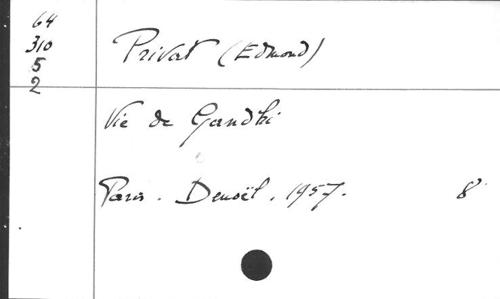 64
310
5
2
Privat (Edmond)
Vie de Gandhi
Paris. Denoël. 1957. 8°